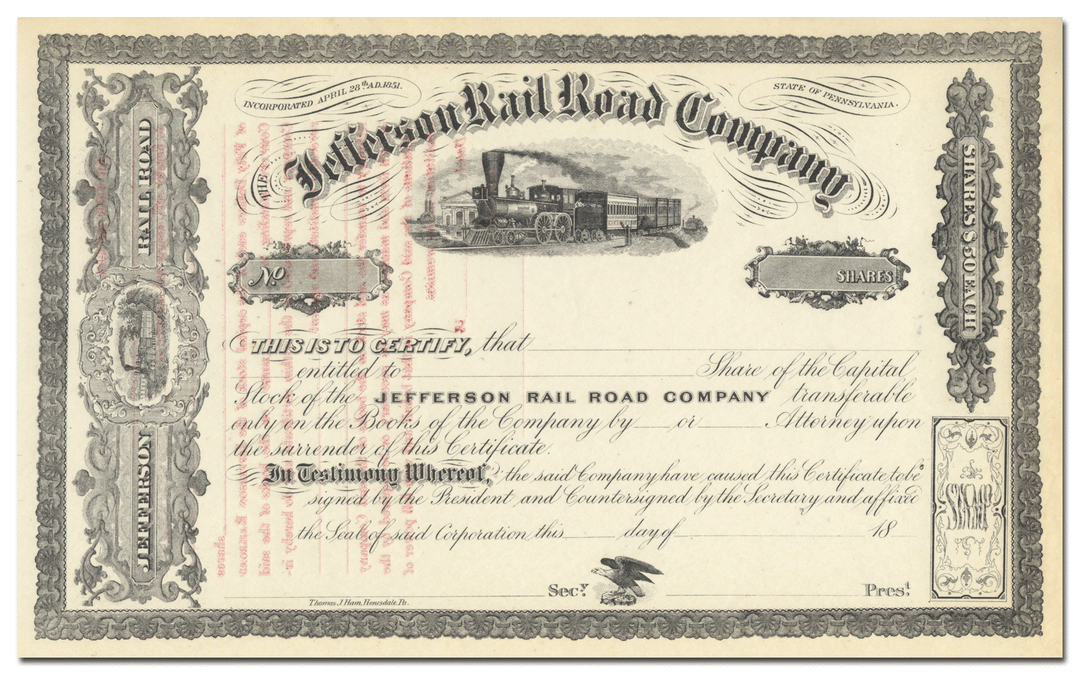 INCORPORATED APRIL 28th A.D. 1851.
STATE OF PENNSYLVANIA.
THE Jefferson Rail Road Company
JEFFERSON RAIL ROAD
SHARES $50 EACH
No
SHARES
THIS IS TO CERTIFY, that
entitled to Share of the Capital
Stock of the JEFFERSON RAIL ROAD COMPANY transferable
only on the Books of the Company by or Attorney upon
the surrender of this Certificate.
In Testimony Whereof, the said Company have caused this Certificate to be
signed by the President and Countersigned by the Secretary and affixed
the Seal of said Corporation this day of 18
STAMP
Secy
Prest
Thomas J. Ham, Honesdale, Pa.